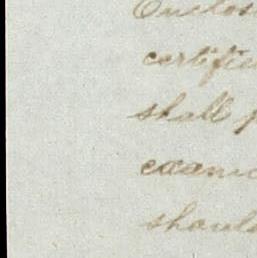 Enclos
certifie
shall p
exami
should